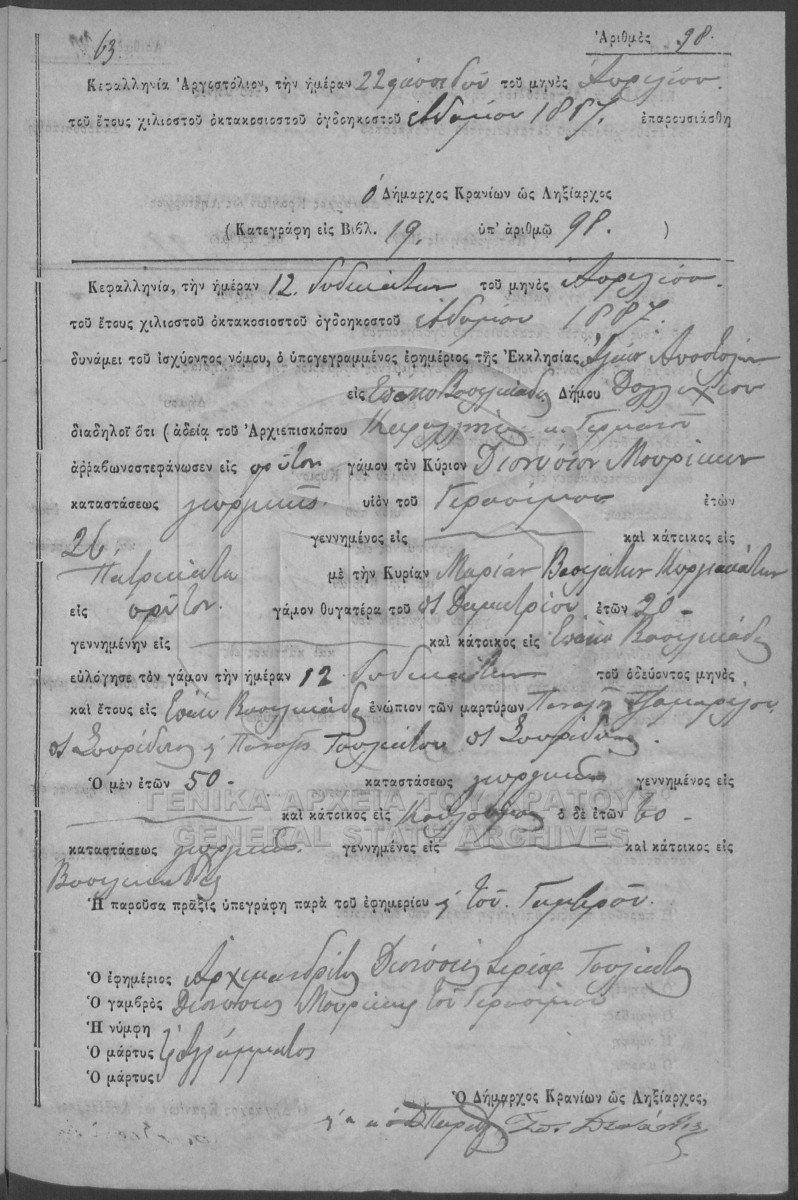 63
Ἀριθμὸς 98.
Κεφαλληνία Ἀργοστόλιον, τὴν ἡμέραν 22 τοῦ μηνὸς Ἀπριλίου.
τοῦ ἔτους χιλιοστοῦ ὀκτακοσιοστοῦ ὀγδοηκοστοῦ ἑβδόμου 1887. ἐπαρουσιάσθη
ὁ Δήμαρχος Κρανίων ὡς Ληξίαρχος
( Κατεγράφη εἰς Βιβλ. 19. ὑπ' ἀριθμῷ 98. )
Κεφαλληνία, τὴν ἡμέραν 12. δωδεκάτην τοῦ μηνὸς Ἀπριλίου.
τοῦ ἔτους χιλιοστοῦ ὀκτακοσιοστοῦ ὀγδοηκοστοῦ ἑβδόμου 1887.
δυνάμει τοῦ ἰσχύοντος νόμου, ὁ ὑπογεγραμμένος ἐφημέριος τῆς Ἐκκλησίας Ἁγίων Ἀποστόλων
εἰς Ἐπάνω Βασιλικάδες Δήμου
διαδηλοῖ ὅτι ( ἀδείᾳ τοῦ Ἀρχιεπισκόπου Κεφαλληνίας κ. Γερμανοῦ
ἀῤῥαβωνοστεφάνωσεν εἰς πρῶτον γάμον τὸν Κύριον Διονύσιον Μουρίκην
καταστάσεως γεωργικῆς. υἱὸν τοῦ Γερασίμου ἐτῶν
26. γεννημένος εἰς καὶ κάτοικος εἰς
Πατρικάτα μὲ τὴν Κυρίαν Μαρίαν
εἰς πρῶτον. γάμον θυγατέρα τοῦ Δημητρίου ἐτῶν 20 -
γεννημένην εἰς καὶ κάτοικος εἰς Ἐπάνω Βασιλικάδες
εὐλόγησε τὸν γάμον τὴν ἡμέραν 12 δωδεκάτην τοῦ ὁδεύοντος μηνὸς
καὶ ἔτους εἰς Ἐπάνω Βασιλικάδες ἐνώπιον τῶν μαρτύρων Παναγῆ
Σπυρίδωνος Παναγῆς Τουλιάτου Σπυρίδωνος.
Ὁ μὲν ἐτῶν 50 - καταστάσεως γεωργικῆς γεννημένος εἰς
καὶ κάτοικος εἰς ὁ δὲ ἐτῶν 60 -
καταστάσεως γεωργικῆς. γεννημένος εἰς καὶ κάτοικος εἰς
Βασιλικάδες
Ἡ παροῦσα πρᾶξις ὑπεγράφη παρὰ τοῦ ἐφημερίου τοῦ Γαμβροῦ.
Ὁ ἐφημέριος Ἀρχιμανδρίτης Διονύσιος Τουλιάτος
Ὁ γαμβρὸς Διονύσιος Μουρίκης τοῦ Γερασίμου
Ἡ νύμφη
Ὁ μάρτυς ἀγράμματος
Ὁ μάρτυς
Ὁ Δήμαρχος Κρανίων ὡς Ληξίαρχος,
ΓΕΝΙΚΑ ΑΡΧΕΙΑ ΤΟΥ ΚΡΑΤΟΥΣ
GENERAL STATE ARCHIVES